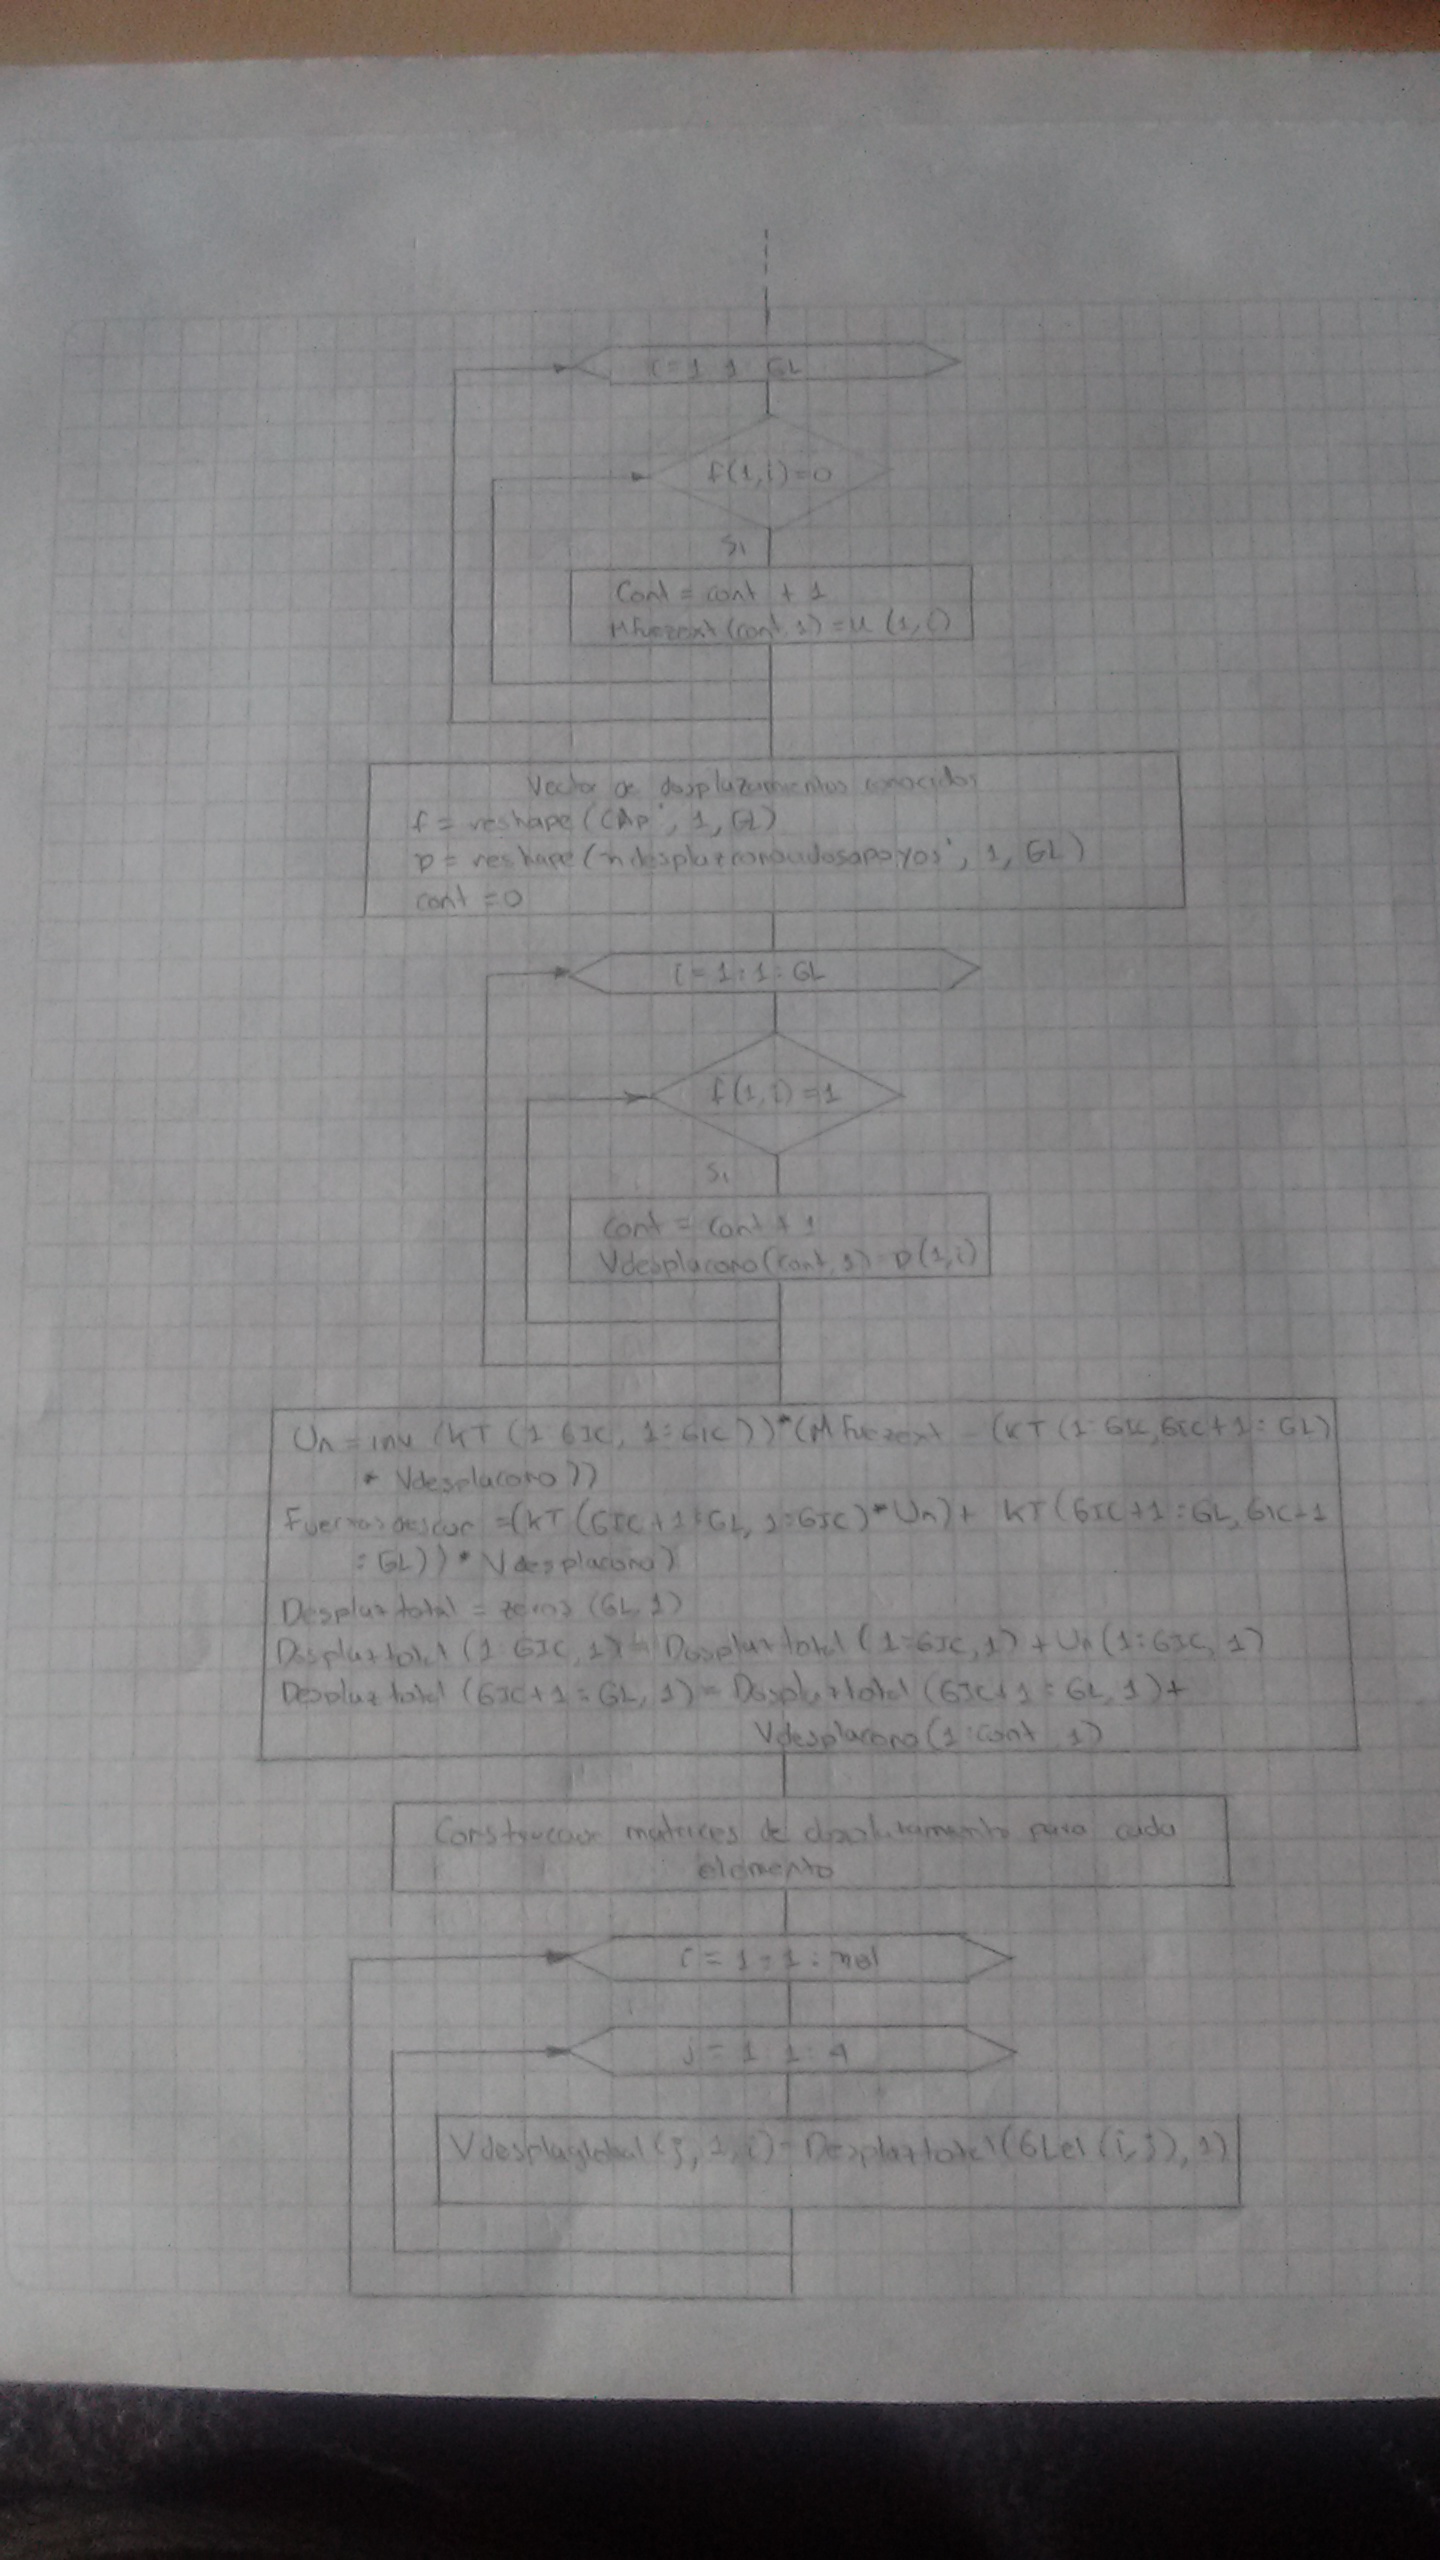 i = 1 : 1 : GL
f(1,i)=0
Si
Cont = cont + 1
Mfuezext(cont,1) = u (1,i)
Vector de desplazamientos conocidos
f = reshape (CAp', 1, GL)
D = reshape (mdesplazconocidosapoyos', 1, GL)
cont = 0
i = 1 : 1 : GL
f(1,i) = 1
Si
cont = cont + 1
Vdesplacono(cont,1) = D(1,i)
Un = inv (KT (1:GIC, 1:GIC))*(Mfuezext - (KT (1:GIC,GIC+1:GL)
* Vdesplacono))
=(KT(GIC+1:GL, 1:GIC)*Un)+ KT(GIC+1:GL,GIC+1
:GL))*Vdesplacono)
Desplaztotal = zeros (GL,1)
Desplaztotal (1:GIC,1) = Desplaztotal (1:GIC,1) + Un(1:GIC, 1)
Desplaztotal (GIC+1:GL, 1) = Desplaztotal (GIC+1:GL, 1)+
Vdesplacono(1:cont, 1)
Construccion matrices de desplazamiento para cada
elemento
i = 1 : 1 : nel
j = 1 : 1 : 4
Vdesplaglobal(j, 1, i) = Desplaztotal(GLel (i,j),1)